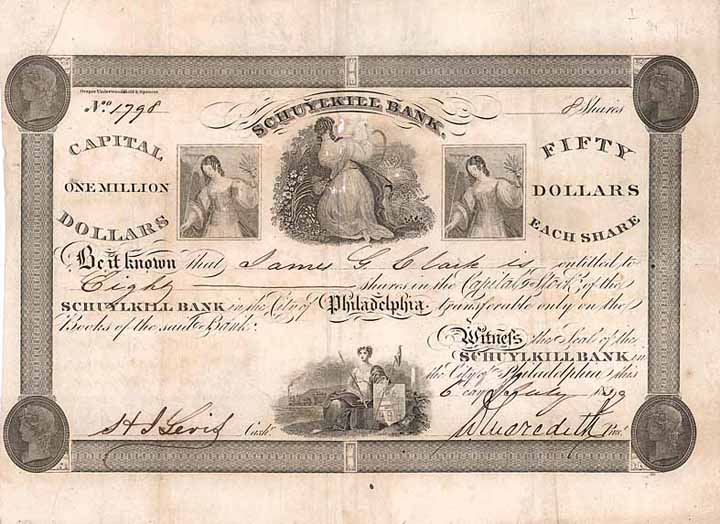 Draper Underwood Bald & Spencer
No. 1798
8 Shares
SCHUYLKILL BANK.
CAPITAL
ONE MILLION
DOLLARS
FIFTY
DOLLARS
EACH SHARE
Be it known that James G. Clark is entitled to
Eight shares in the Capital Stock of the
SCHUYLKILL BANK in the City of Philadelphia. transferable only on the
Books of the said Bank.
Witness the Seal of the
SCHUYLKILL BANK in
the City of Philadelphia this
6 day July 1839
H J Levis Cashr.
W Meredith Pres.